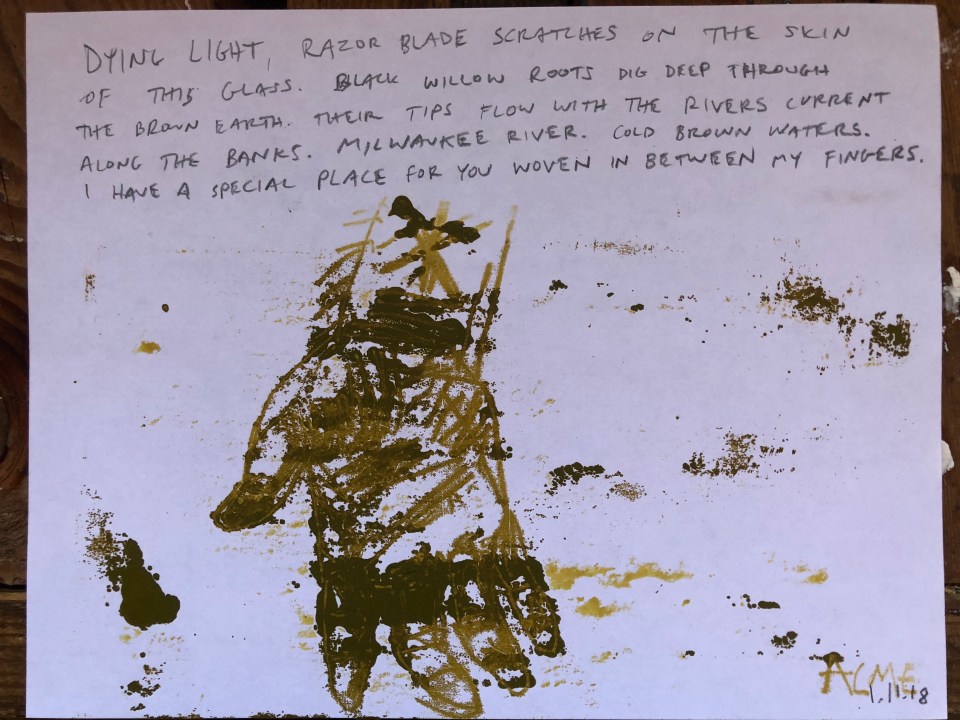 DYING LIGHT, RAZOR BLADE SCRATCHES ON THE SKIN
OF THIS GLASS. BLACK WILLOW ROOTS DIG DEEP THROUGH
THE BROWN EARTH. THEIR TIPS FLOW WITH THE RIVERS CURRENT
ALONG THE BANKS. MILWAUKEE RIVER. COLD BROWN WATERS.
I HAVE A SPECIAL PLACE FOR YOU WOVEN IN BETWEEN MY FINGERS.
ACME
1.11.18